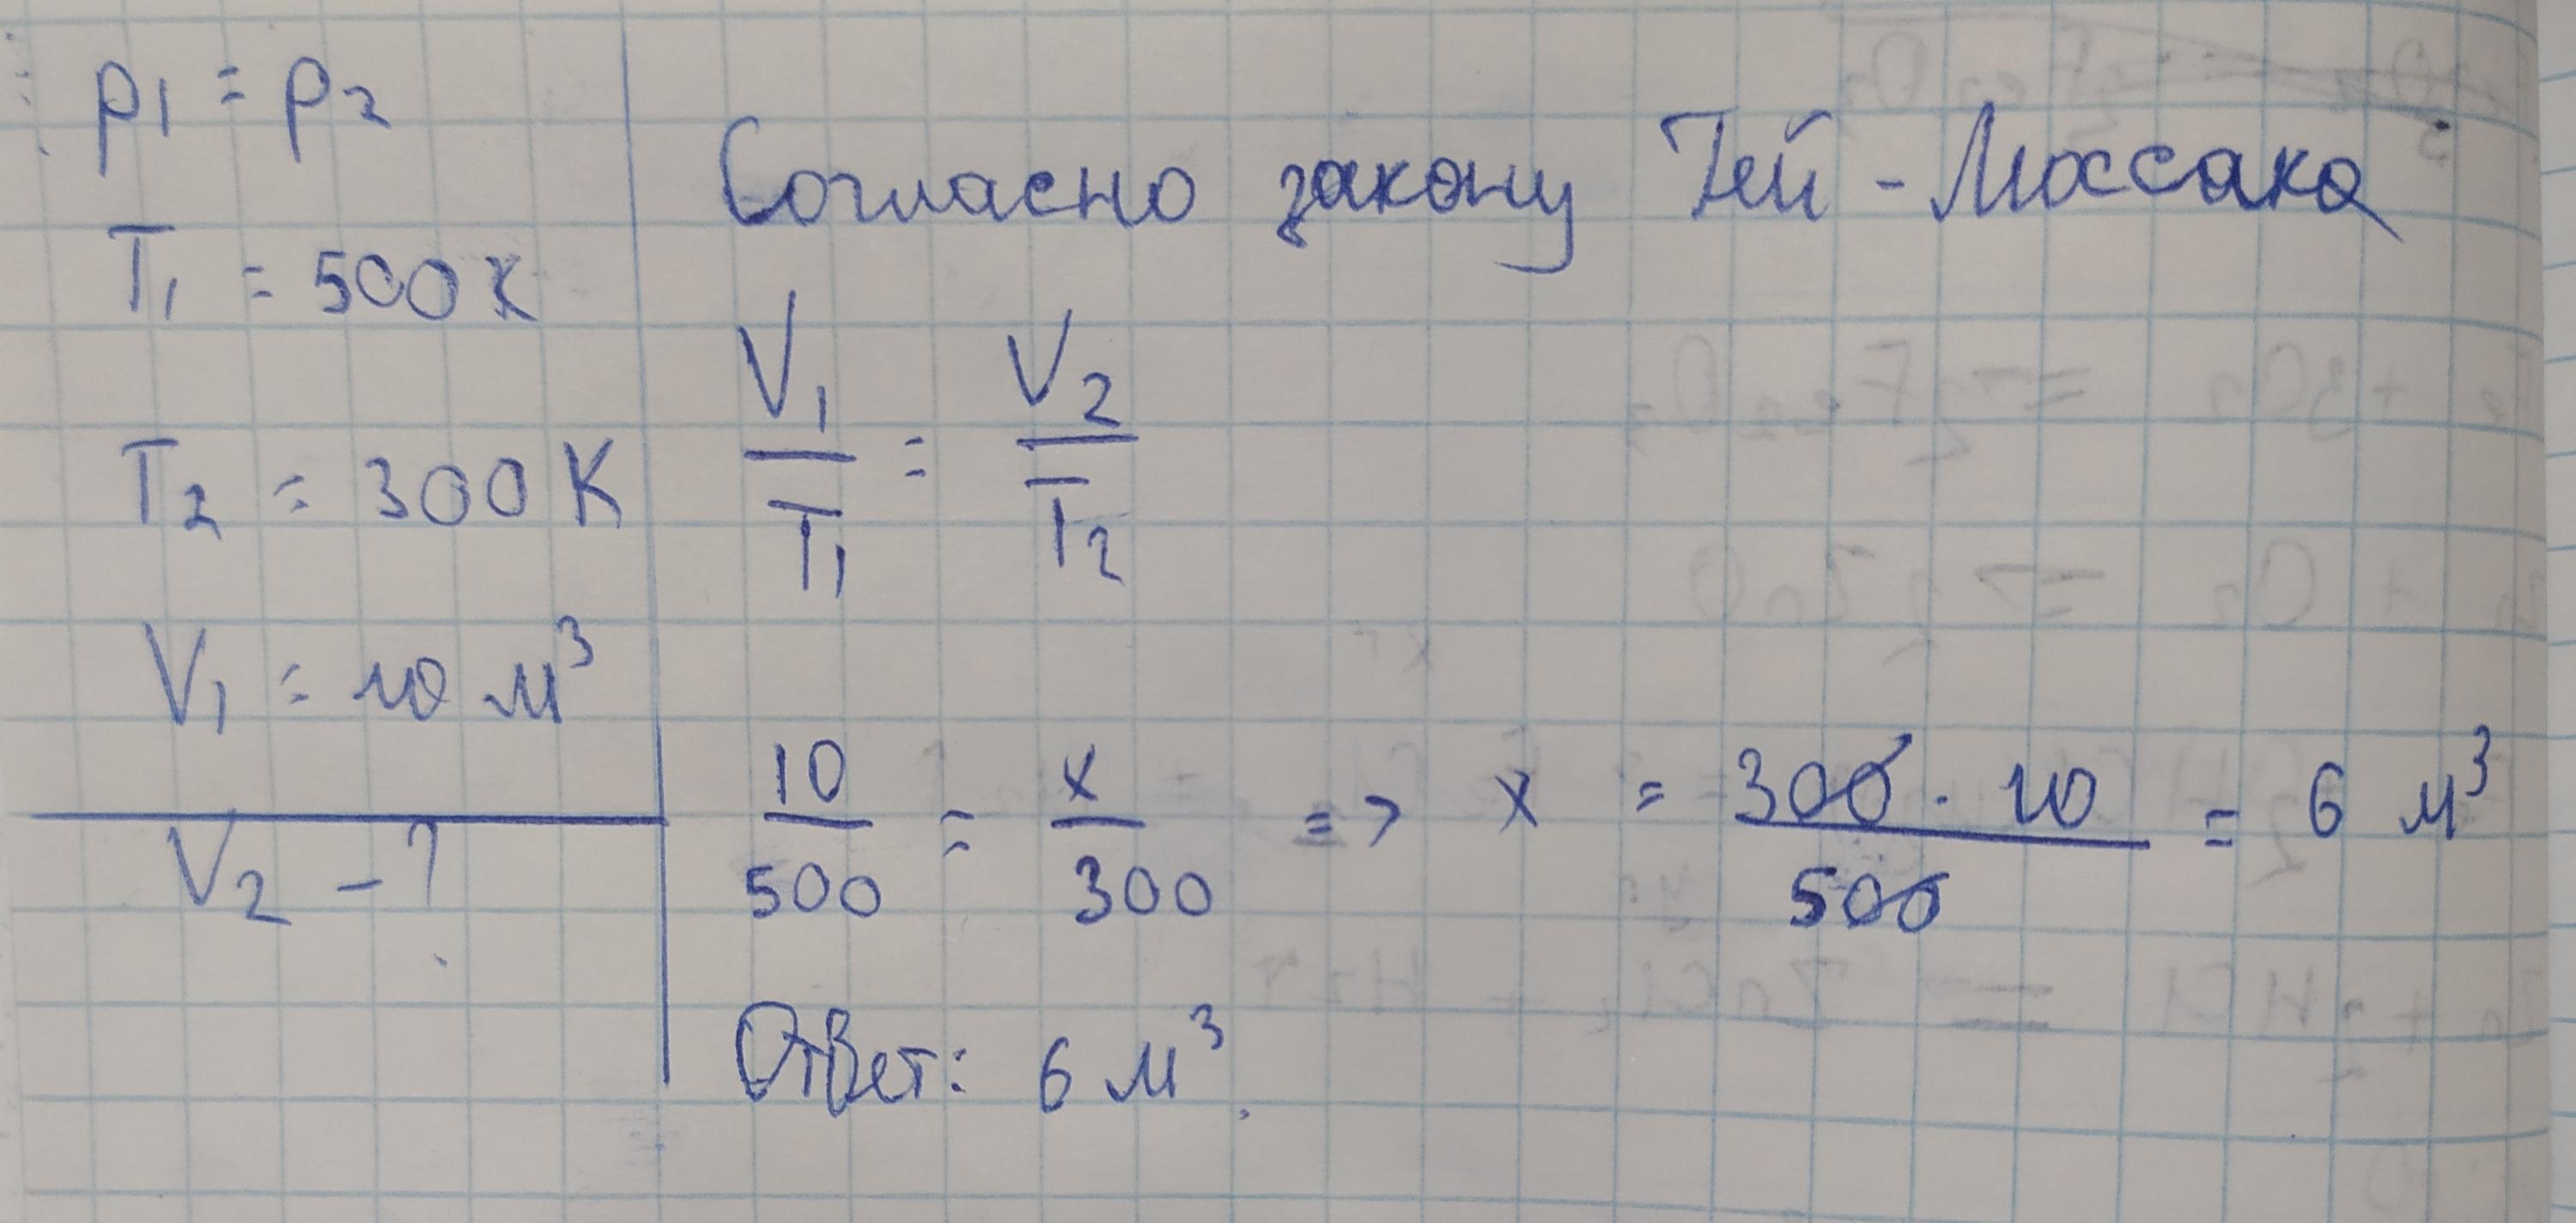 p1 = p2
T1 = 500 К
T2 = 300 К
V1 = 10 м³
V2 - ?
Согласно закону Гей - Люссака
V1/T1 = V2/T2
10/500 = x/300 => x = 300 · 10/500 = 6 м³
Ответ: 6 м³.